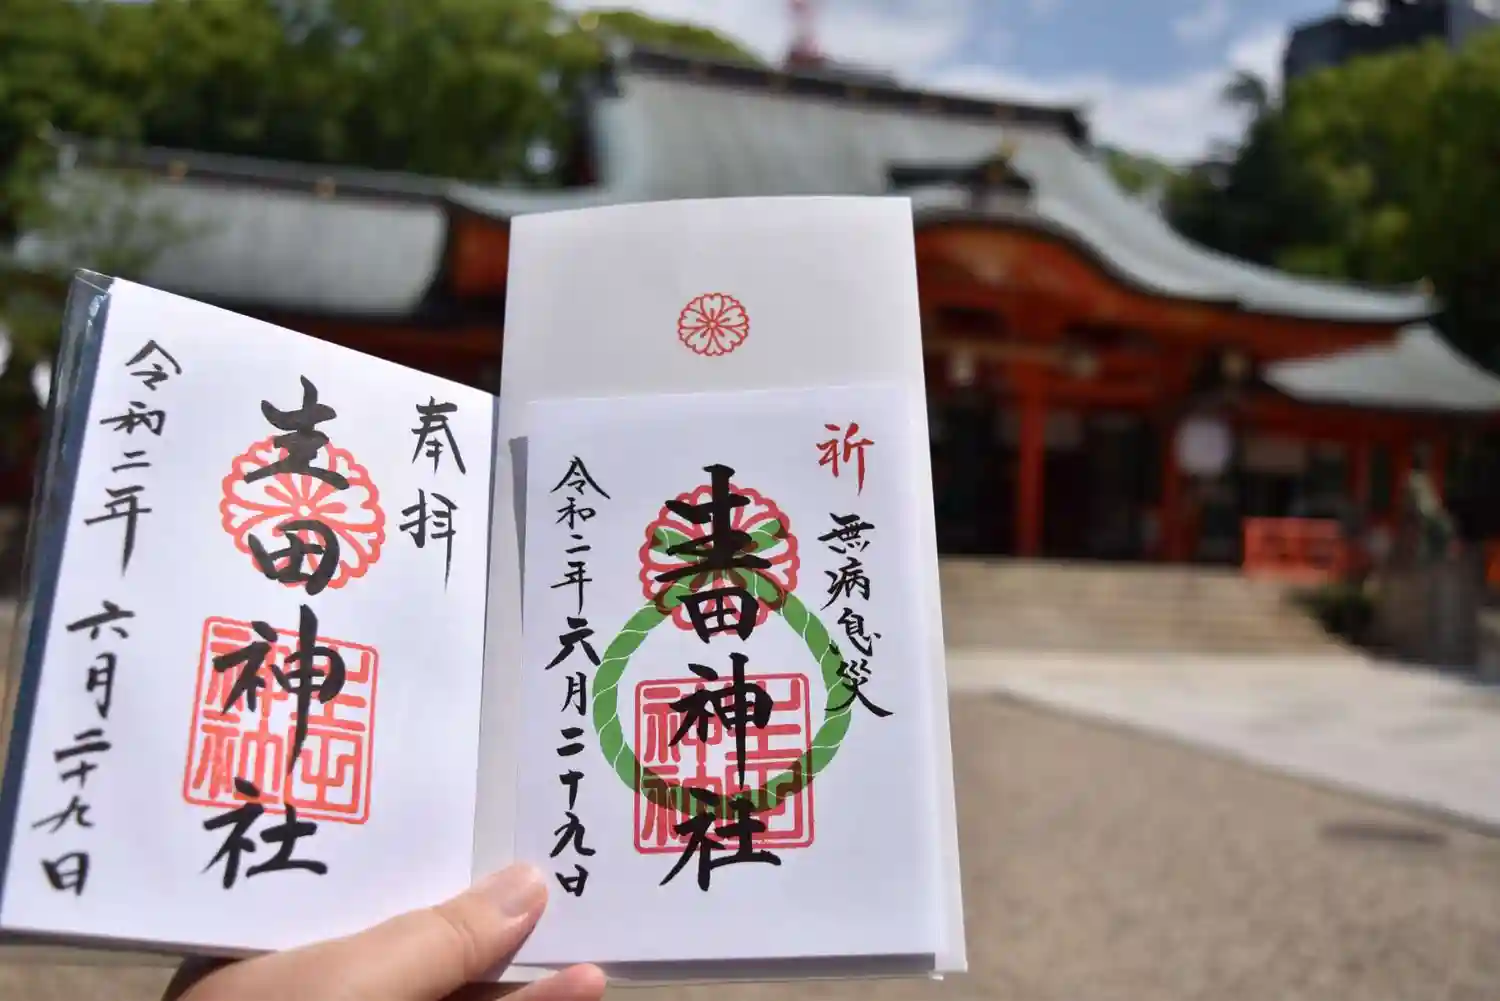 奉拝
生田神社
生田神社
令和二年 六月二十九日
祈 無病息災
生田神社
生田神社
令和二年六月二十九日